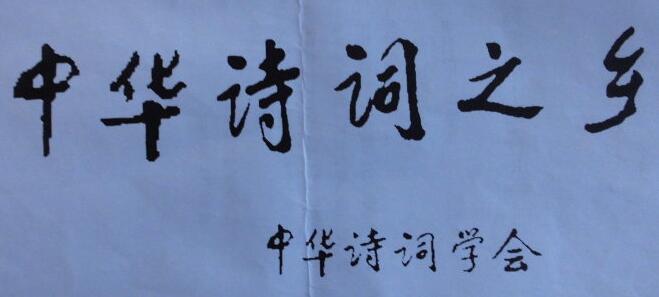 中华诗词之乡
中华诗词学会